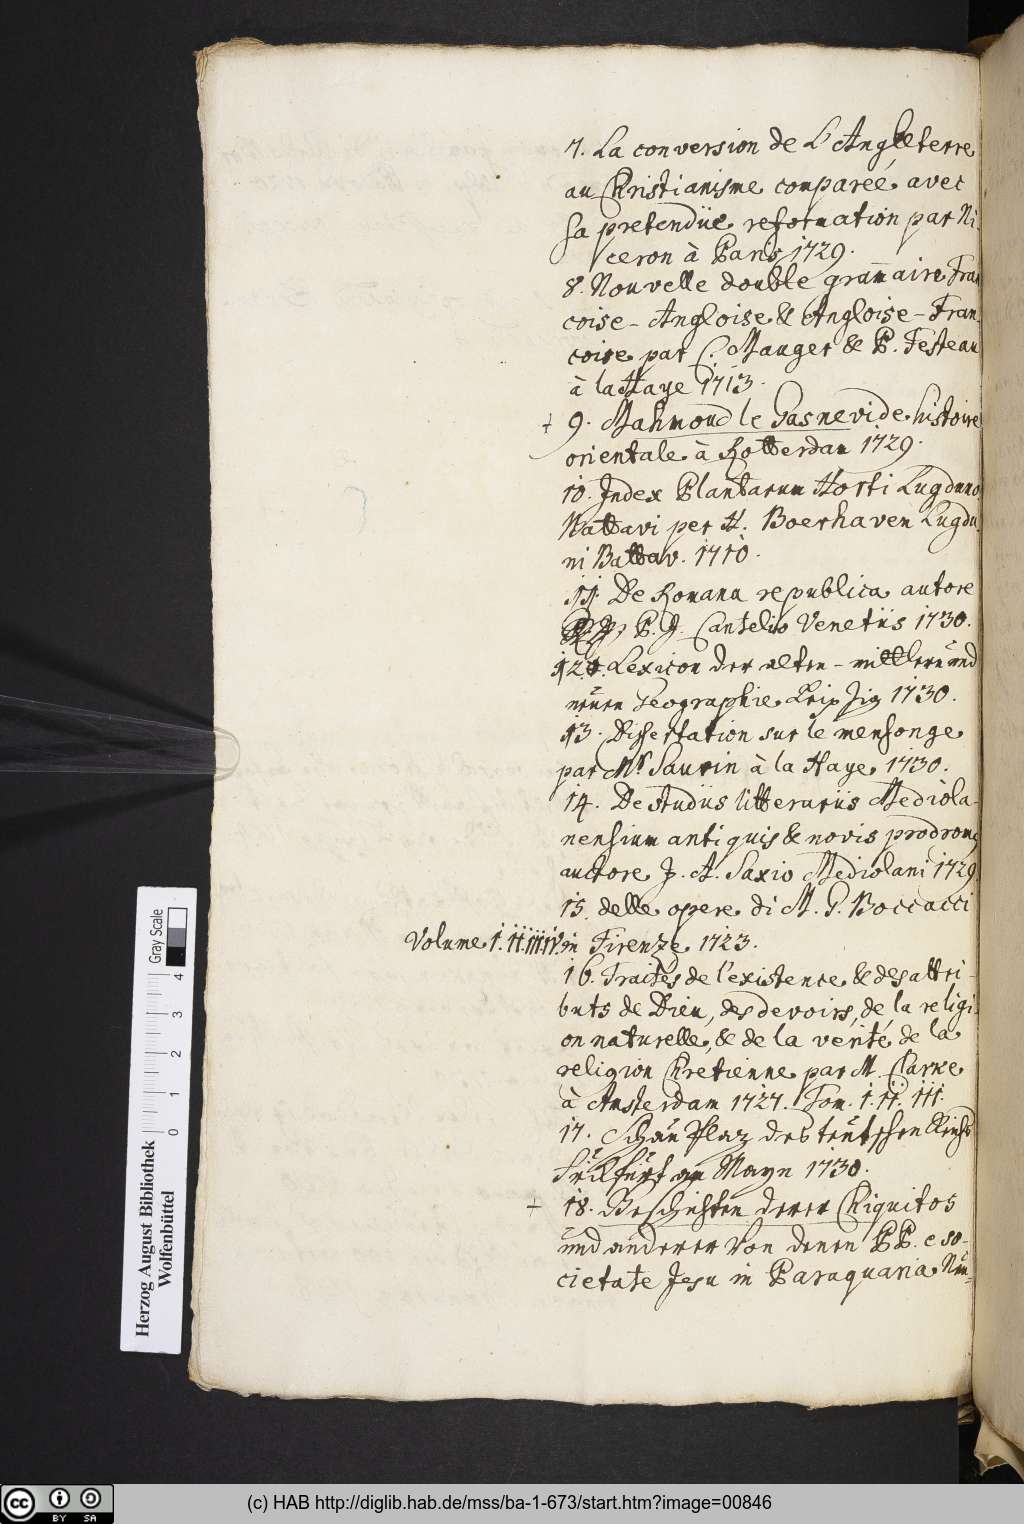 7. La conversion de L'Angleterre
au Christianisme comparée avec
sa pretendüe reformation par Ni-
ceron à Paris 1729.
8. Nouvelle double gram̄aire Fran
coise - Angloise & Angloise - Fran-
coise par C. Mauger & P. Festeau
à la Haye 1713.
+ 9. Mahmoud le Gasnevide histoire
orientale à Rotterdam 1729.
10. Index Plantarum Horti Lugduno
Battavi per H. Boerhaven Lugdu
ni Battav. 1710.
11. De Romana republica autore
P. J. Cantelio Venetiis 1730.
12. Lexicon der alten - mittlern und
neuen Geographie Leipzig 1730.
13. Dissertation sur le mensonge
par Mr. Saurin à la Haye 1730.
14. De studiis litterariis Mediola-
nensium antiquis & novis prodromg
auctore J. A. Saxio Mediolani 1729
15. delle opere di M. G. Boccacci
Volume I. II. III. IV. in Firenze 1723.
16. Traités de l'existence & des attri-
buts de Dieu, des devoirs, de la religi-
on naturelle, & de la verité de la
religion Chretienne par M. Clarke
à Amsterdam 1727. Tom. I. II. III.
17. SchauPlaz des teutschen
am Mayn 1730.
+ 18. Geschichten derer Chiquitos
und anderer von denen PP. e so-
cietate Jesu in Paraquaria
Gray Scale
0 1 2 3 4
Herzog August Bibliothek
Wolfenbüttel
cc BY SA
(c) HAB http://diglib.hab.de/mss/ba-1-673/start.htm?image=00846